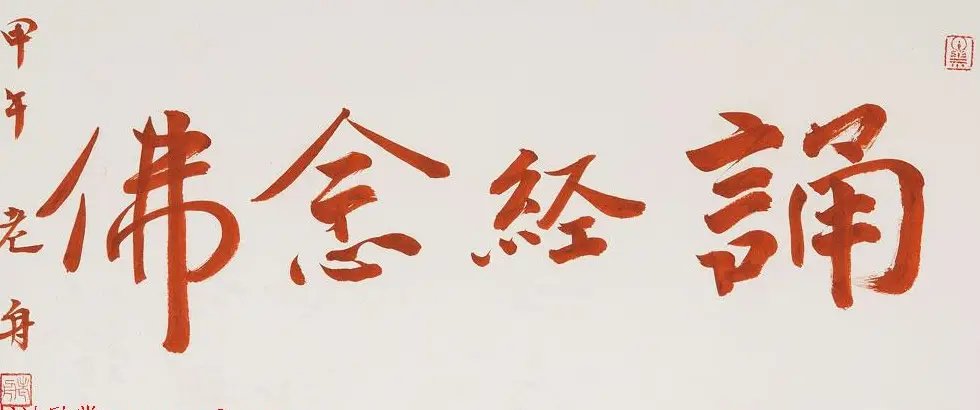 誦经念佛
甲午 老舟